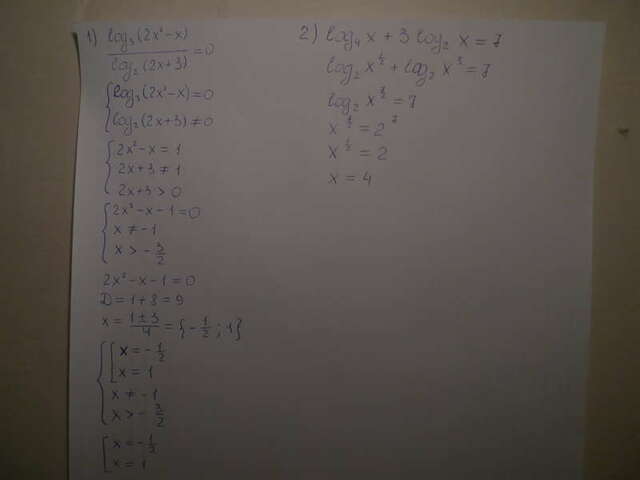 1) log₃(2x²-x) / log₂(2x+3) = 0
{ log₃(2x²-x)=0
log₂(2x+3) ≠ 0
{ 2x²-x = 1
2x+3 ≠ 1
2x+3 > 0
{ 2x²-x-1=0
x ≠ -1
x > -3/2
2x²-x-1=0
D=1+8=9
x = (1±3)/4 = {-1/2; 1}
{ [ x = -1/2
x = 1
x ≠ -1
x > -3/2
[ x = -1/2
x = 1
2) log₄ x + 3 log₂ x = 7
log₂ x^(1/2) + log₂ x³ = 7
log₂ x^(7/2) = 7
x^(7/2) = 2⁷
x^(1/2) = 2
x = 4